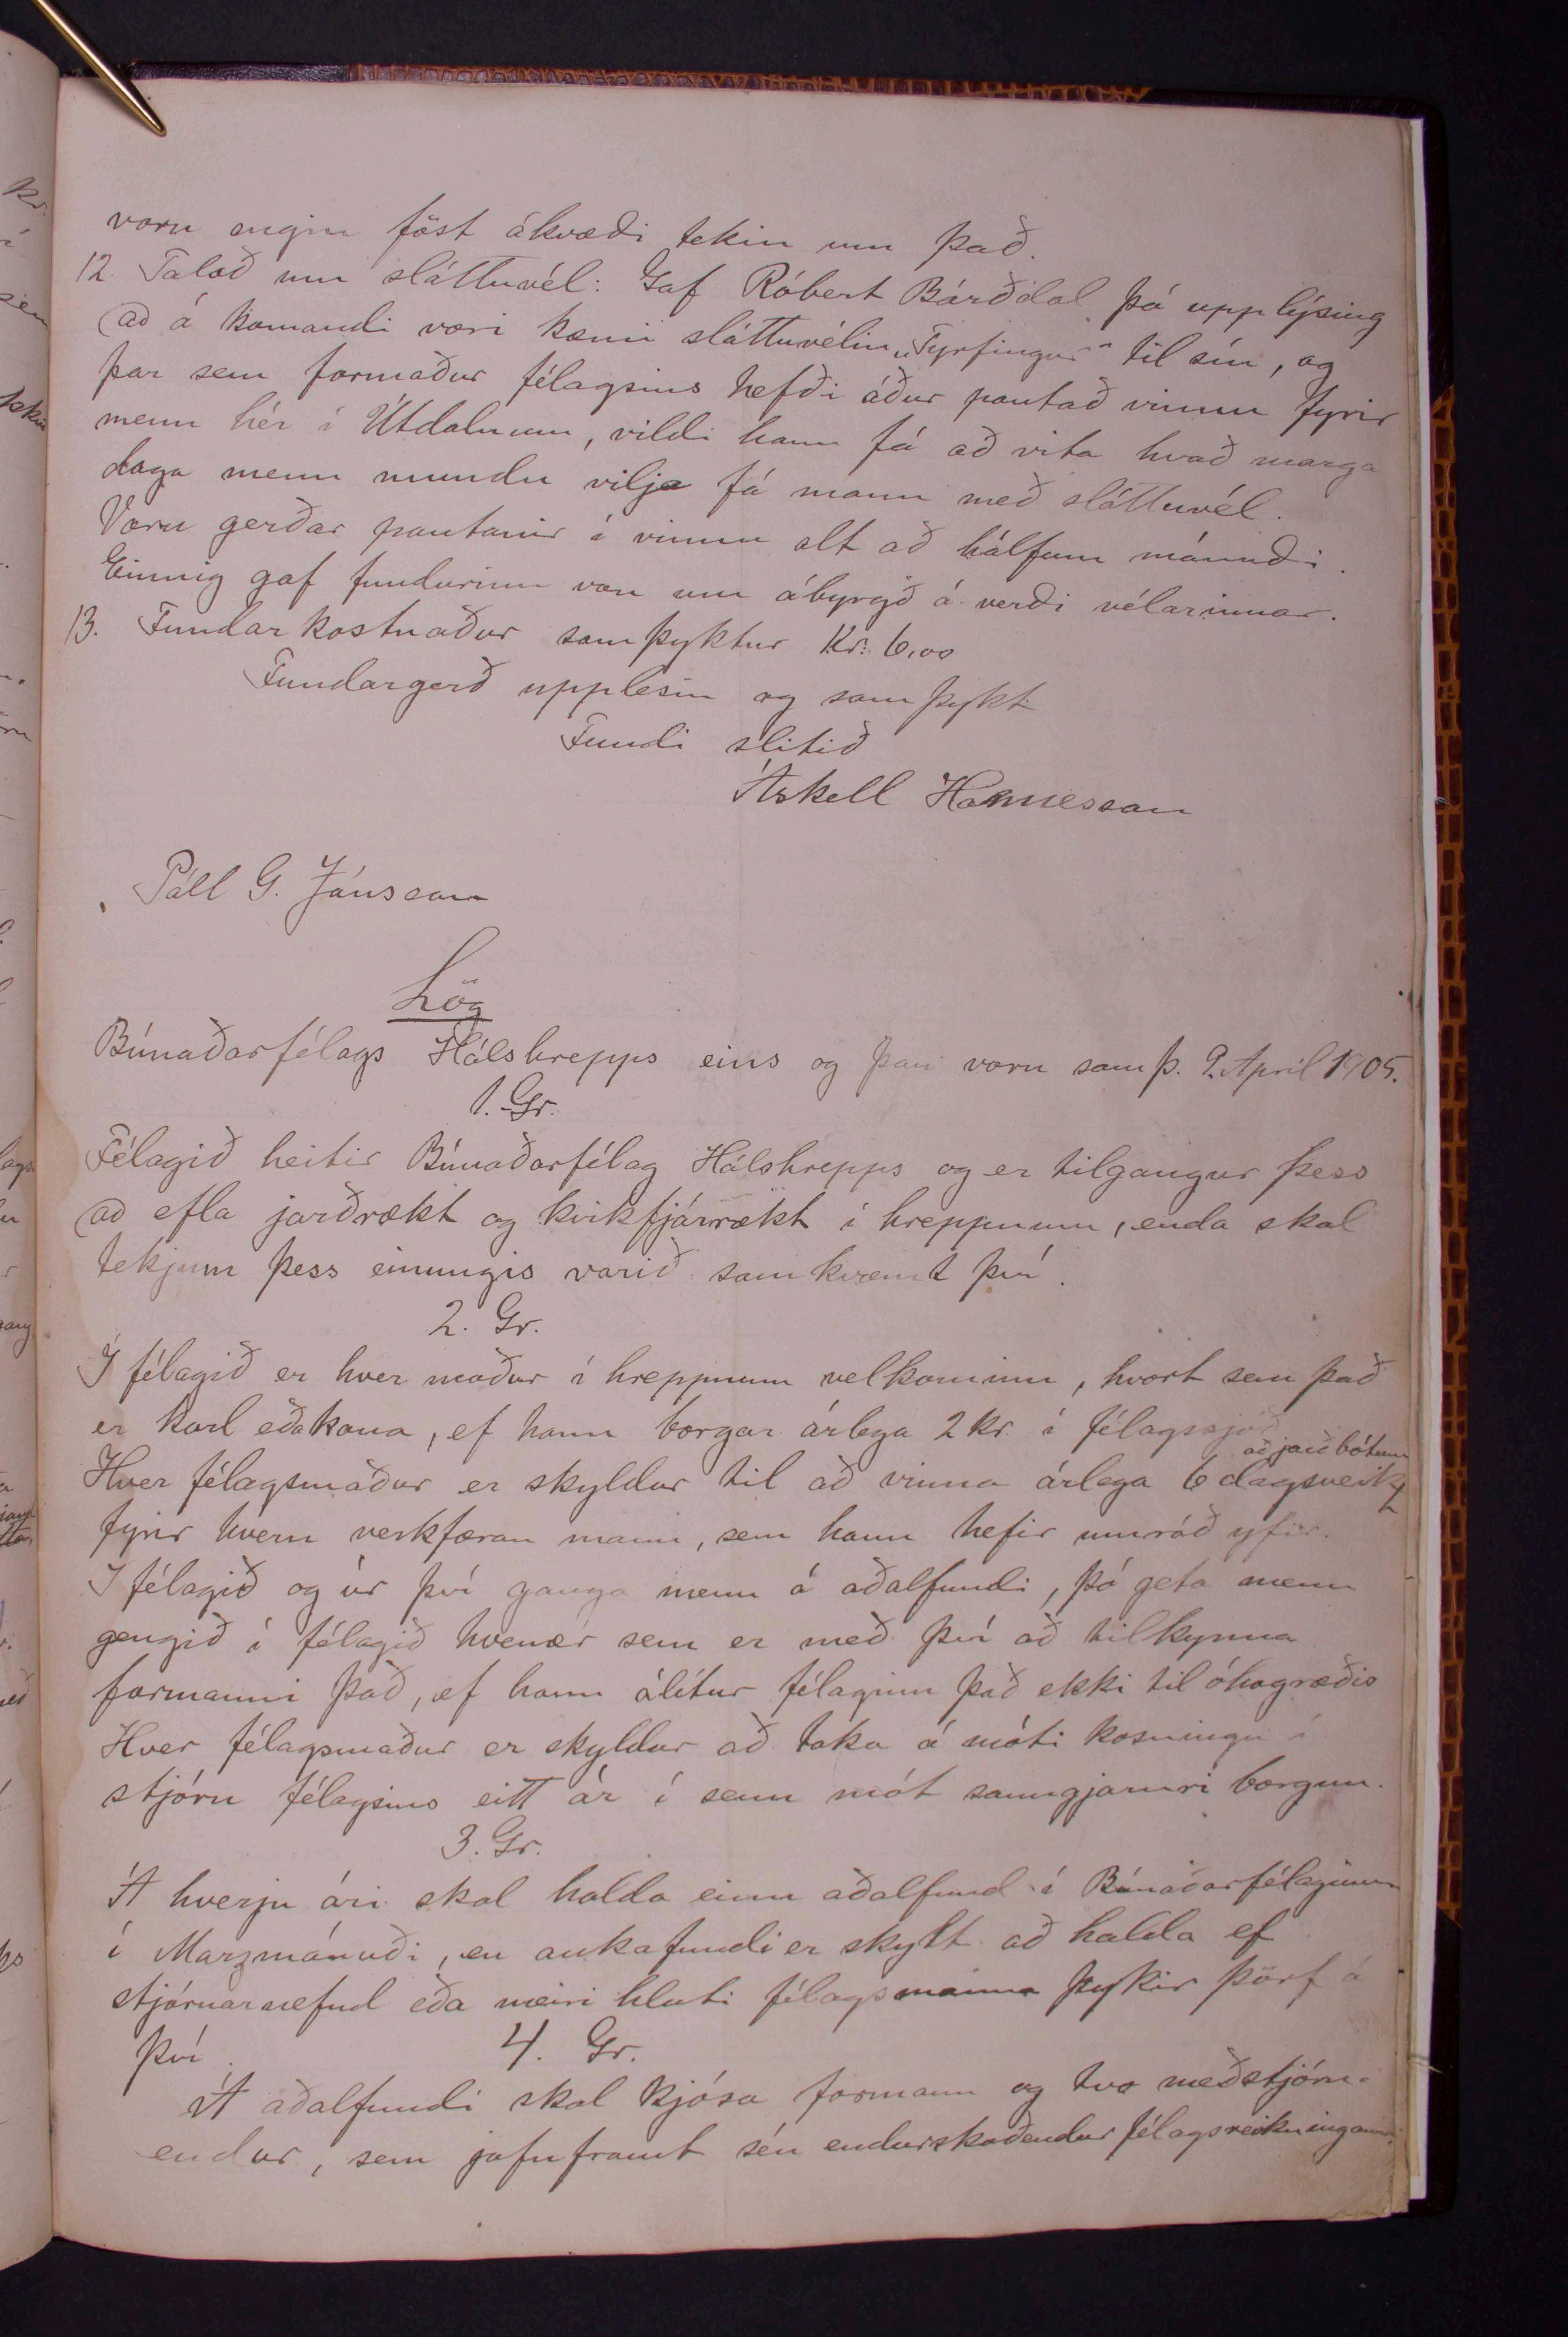 voru engin föst ákvæði tekin um það.
12. Talað um sláttuvél: Gaf Róbert Bárðdal þá upplýsing
að á komandi vori kæmi sláttuvélin „Tyrfingur" til sín, og
þar sem formaður félagsins hefði áður pantað vinnu fyrir
menn hér í Útdalnum, vildi hann fá að vita hvað marga
daga menn mundu vilja fá mann með sláttuvél.
Voru gerðar pantanir í vinnu alt að hálfum mánuði.
Einnig gaf fundurinn von um ábyrgð á verði vélarinnar.
13. Fundarkostnaður samþyktur Kr: 6,00
Fundargerð upplesin og samþykt
Fundi slitið
Áskell Hannesson
Páll G. Jónsson
Lög
Búnaðarfélags Hálshrepps eins og þau voru samþ. 9. April 1905.
1. Gr.
Félagið heitir Búnaðarfélag Hálshrepps og er tilgangur þess
að efla jarðrækt og kvikfjárrækt í hreppnum, enda skal
tekjum þess einungis varið samkvæmt því.
2. Gr.
Í félagið er hver maður í hreppnum velkominn, hvort sem það
er karl eða kona, ef hann borgar árlega 2 kr. í félagssjóð
að jarðbótum
Hver félagsmaður er skyldur til að vinna árlega 6 dagsverk
fyrir hvern verkfæran mann, sem hann hefir umráð yfir.
Í félagið og úr því ganga menn á aðalfundi, þó geta menn
gengið í félagið hvenær sem er með því að tilkynna
formanni það, ef hann álítur félaginu það ekki til óhagræðis
Hver félagsmaður er skyldur að taka á móti kosningu í
stjórn félagsins eitt ár í senn mót sanngjarnri borgun.
3. Gr.
Á hverju ári skal halda einn aðalfund í Búnaðarfélaginu
í Marzmánuði, en aukafundi er skylt að halda ef
stjórnarnefnd eða meiri hluti félagsmanna þykir þörf á
því.
4. Gr.
Á aðalfundi skal kjósa formann og tvo meðstjórn-
endur, sem jafnframt séu endurskoðendur félagsreikninganna